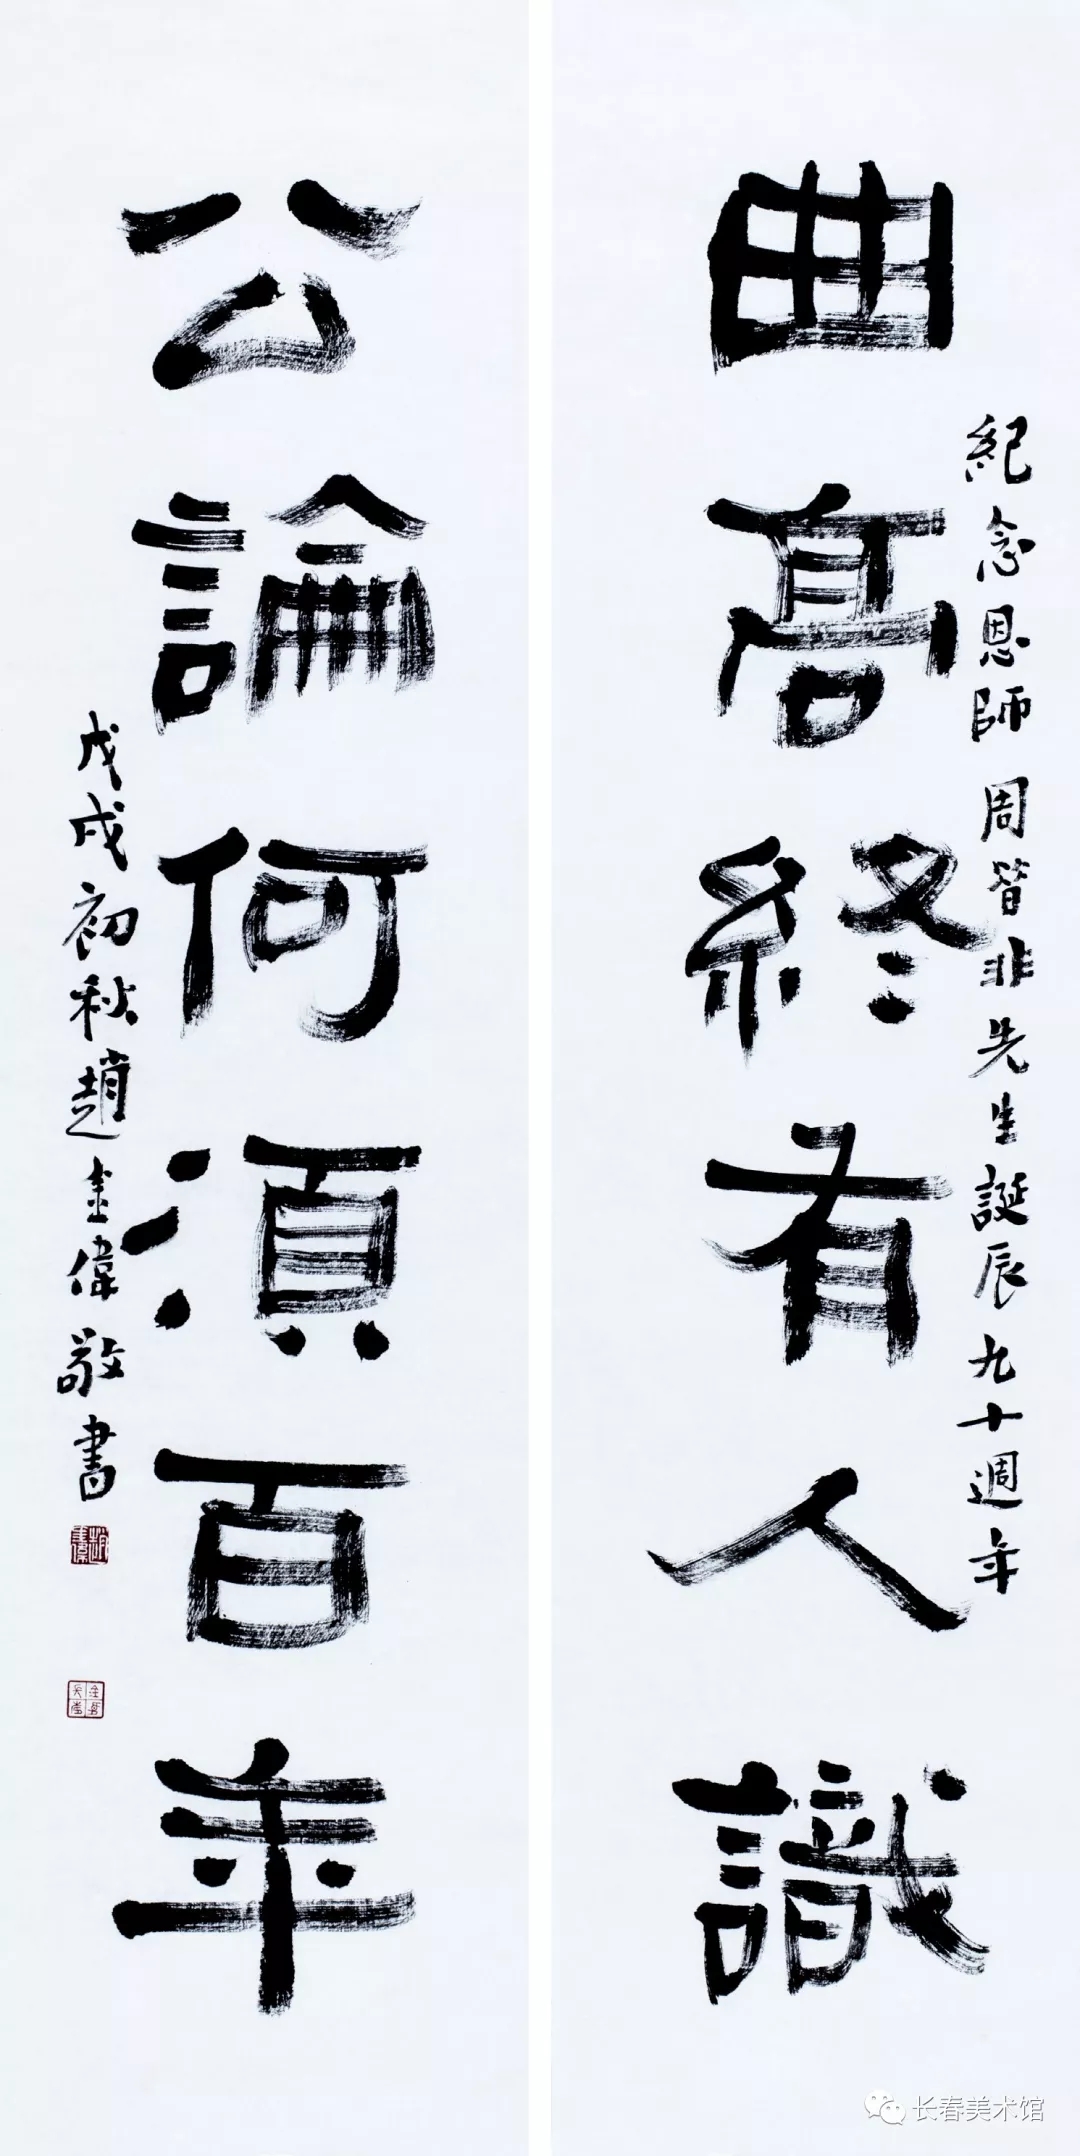 紀念恩師周昔非先生誕辰九十週年
曲高終有人識
公論何須百年
戊戌初秋趙金偉敬書
长春美术馆